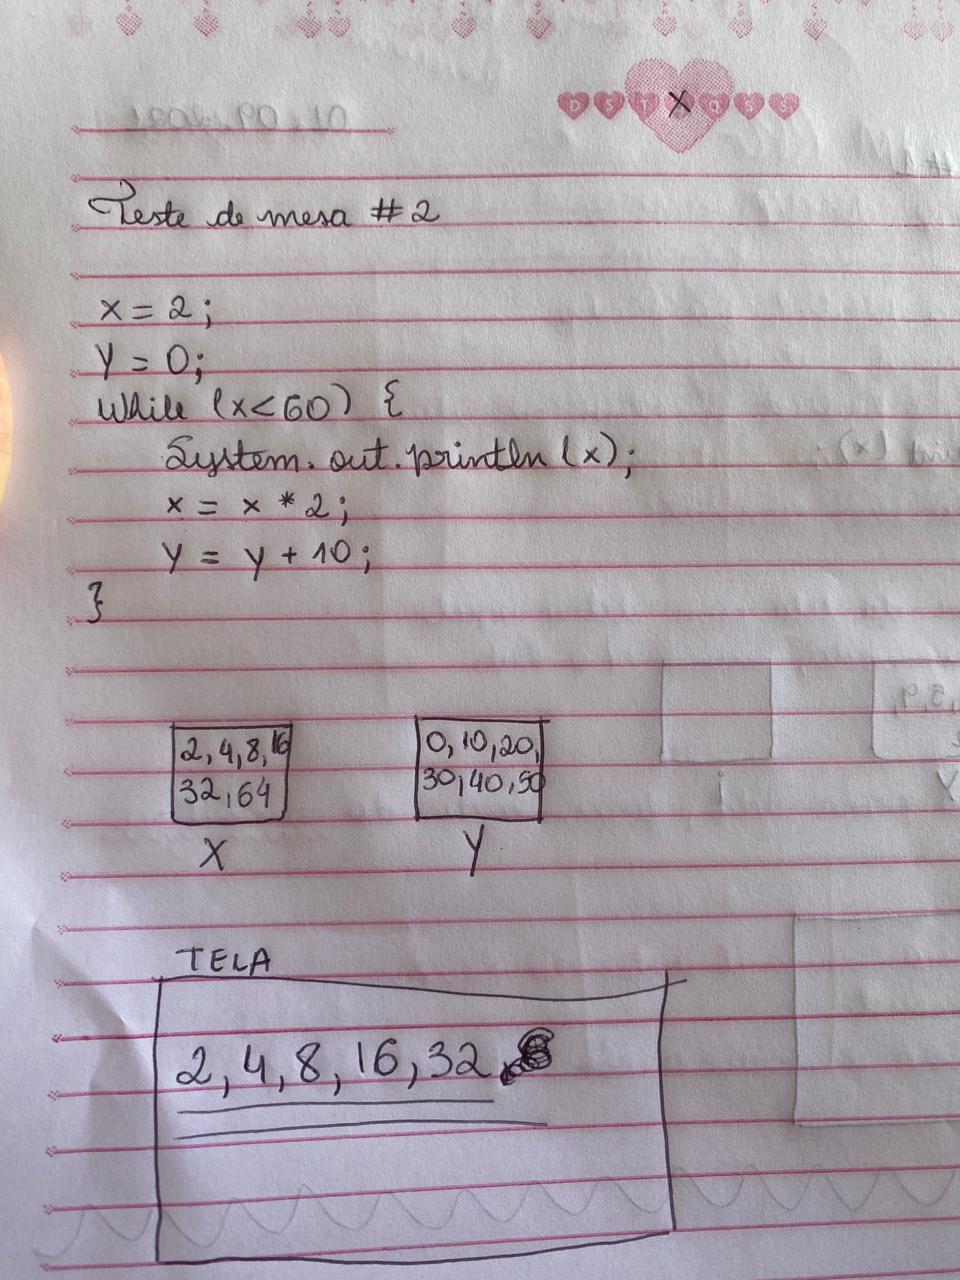 D S T Q Q S S
X
01.09.2021
Teste de mesa #2
x = 2;
Y = 0;
While (x<60) {
System.out.println(x);
x = x * 2;
Y = y + 10;
}
2, 4, 8, 16
32, 64
X
0, 10, 20,
30, 40, 50
Y
TELA
2, 4, 8, 16, 32